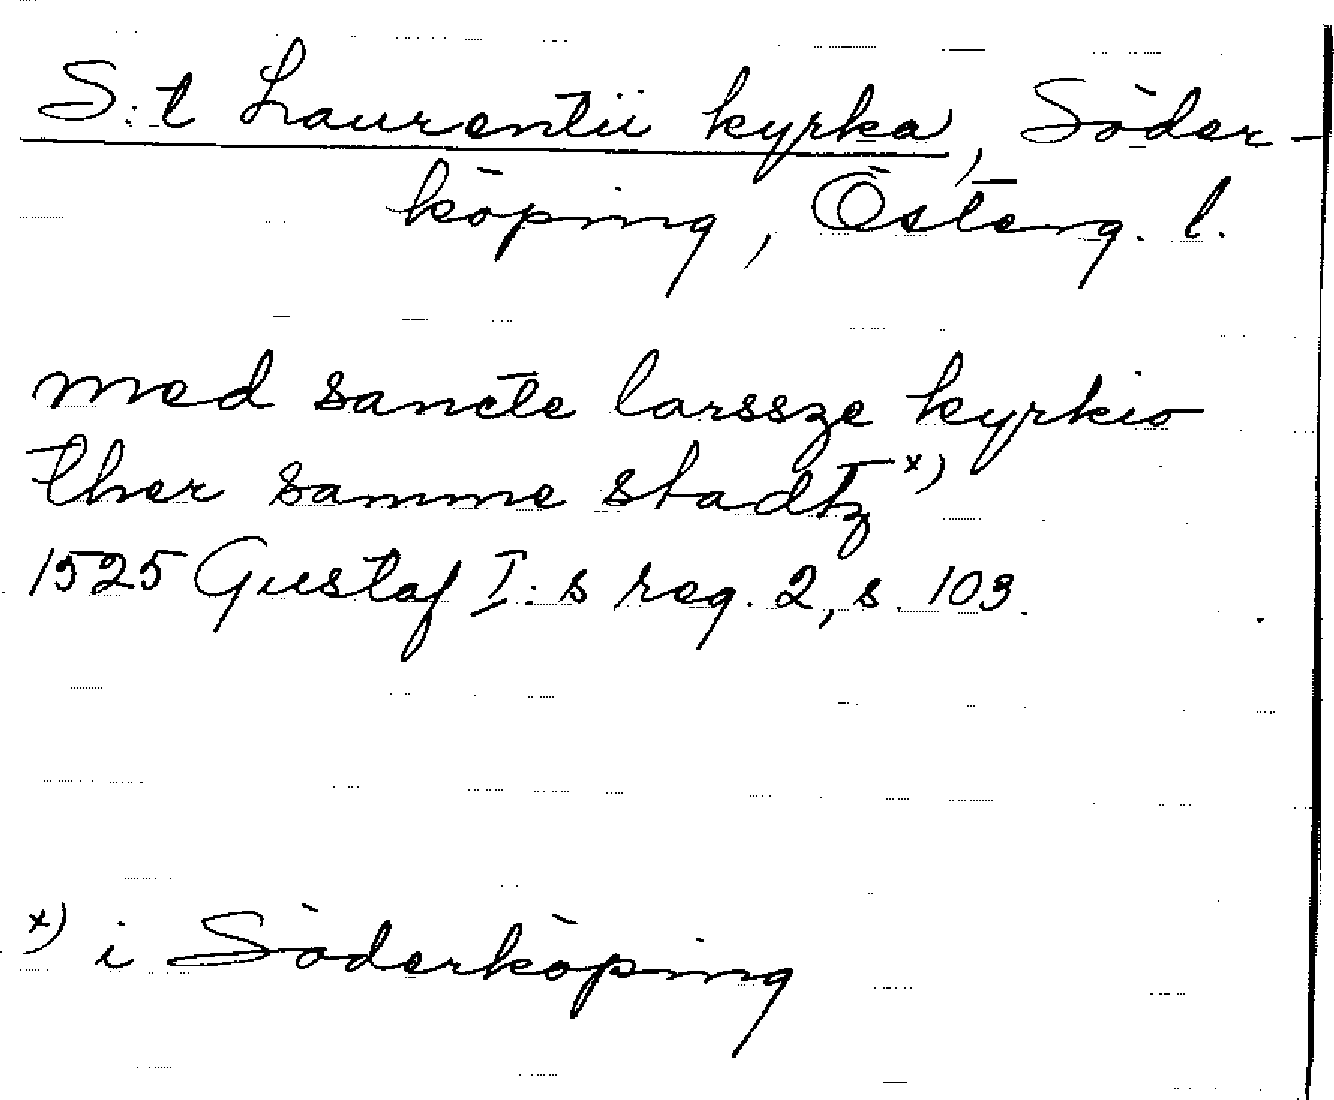 S:t Laurentii kyrka, Söder-
köping, Österg. l.
med sancte larssze kyrkio
ther samme stadtz x)
1525 Gustaf I:s reg. 2, s. 103.
x) i Söderköping